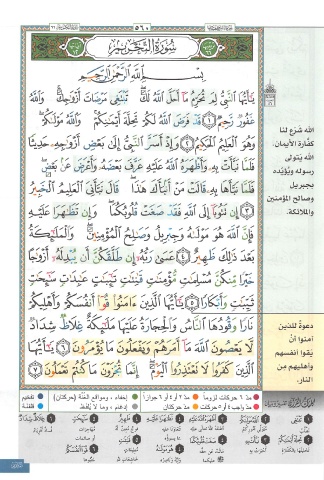 ٥٦٠
سُورَةُ التَّحْرِيمِ
بِسْمِ اللَّهِ الرَّحْمَٰنِ الرَّحِيمِ
يَا أَيُّهَا النَّبِيُّ لِمَ تُحَرِّمُ مَا أَحَلَّ اللَّهُ لَكَ تَبْتَغِي مَرْضَاتَ أَزْوَاجِكَ وَاللَّهُ
غَفُورٌ رَحِيمٌ ١ قَدْ فَرَضَ اللَّهُ لَكُمْ تَحِلَّةَ أَيْمَانِكُمْ وَاللَّهُ مَوْلَاكُمْ
وَهُوَ الْعَلِيمُ الْحَكِيمُ ٢ وَإِذْ أَسَرَّ النَّبِيُّ إِلَى بَعْضِ أَزْوَاجِهِ حَدِيثًا
فَلَمَّا نَبَّأَتْ بِهِ وَأَظْهَرَهُ اللَّهُ عَلَيْهِ عَرَّفَ بَعْضَهُ وَأَعْرَضَ عَنْ بَعْضٍ
فَلَمَّا نَبَّأَهَا بِهِ قَالَتْ مَنْ أَنْبَأَكَ هَذَا قَالَ نَبَّأَنِيَ الْعَلِيمُ الْخَبِيرُ
٣ إِنْ تَتُوبَا إِلَى اللَّهِ فَقَدْ صَغَتْ قُلُوبُكُمَا وَإِنْ تَظَاهَرَا عَلَيْهِ
فَإِنَّ اللَّهَ هُوَ مَوْلَاهُ وَجِبْرِيلُ وَصَالِحُ الْمُؤْمِنِينَ وَالْمَلَائِكَةُ
بَعْدَ ذَلِكَ ظَهِيرٌ ٤ عَسَى رَبُّهُ إِنْ طَلَّقَكُنَّ أَنْ يُبْدِلَهُ أَزْوَاجًا
خَيْرًا مِنْكُنَّ مُسْلِمَاتٍ مُؤْمِنَاتٍ قَانِتَاتٍ تَائِبَاتٍ عَابِدَاتٍ سَائِحَاتٍ
ثَيِّبَاتٍ وَأَبْكَارًا ٥ يَا أَيُّهَا الَّذِينَ آمَنُوا قُوا أَنْفُسَكُمْ وَأَهْلِيكُمْ
نَارًا وَقُودُهَا النَّاسُ وَالْحِجَارَةُ عَلَيْهَا مَلَائِكَةٌ غِلَاظٌ شِدَادٌ
لَا يَعْصُونَ اللَّهَ مَا أَمَرَهُمْ وَيَفْعَلُونَ مَا يُؤْمَرُونَ ٦ يَا أَيُّهَا
الَّذِينَ كَفَرُوا لَا تَعْتَذِرُوا الْيَوْمَ إِنَّمَا تُجْزَوْنَ مَا كُنْتُمْ تَعْمَلُونَ ٧
الله شرع لنا
كفارة الأيمان.
الله يتولى
رسوله ويؤيده
بجبريل
وصالح المؤمنين
والملائكة.
دعوة للذين
آمنوا أن
يقوا أنفسهم
وأهليهم من
النار.
مدّ ٦ حركات لزوماً مدّ ٢ أو ٤ أو ٦ جوازاً إخفاء، ومواقع الغُنَّة (حركتان) تفخيم
مدّ واجب ٤ أو ٥ حركات مدّ حركتان إدغام، وما لا يُلفَظ قلقلة